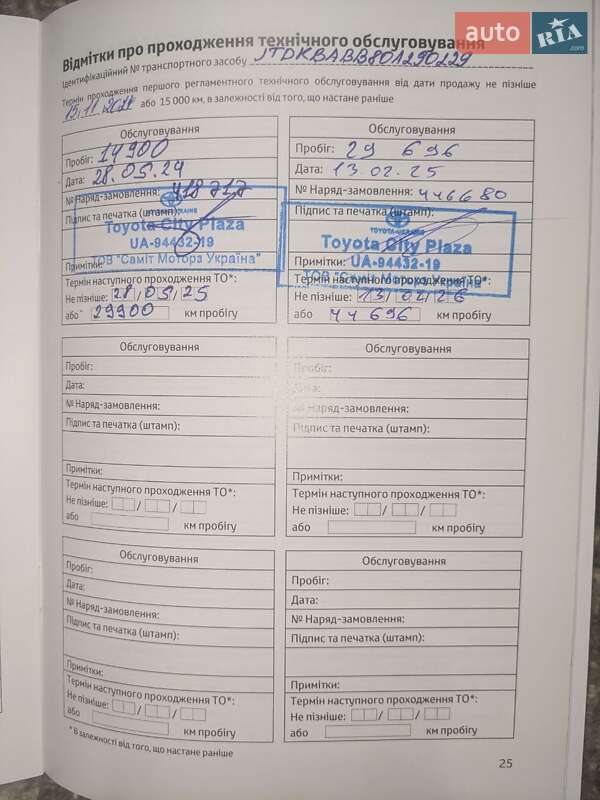 auto RIA.com
Відмітки про проходження технічного обслуговування
Ідентифікаційний № транспортного засобу JTDKBABB80A290229
Термін проходження першого регламентного технічного обслуговування від дати продажу не пізніше
15.11.2024 або 15 000 км, в залежності від того, що настане раніше
Обслуговування
Пробіг: 14900
Дата: 28.05.24
№ Наряд-замовлення: 418717
Підпис та печатка (штамп):
TOYOTA-UKRAINE
Toyota City Plaza
UA-94432-19
Примітки:
ТОВ "Саміт Моторз Україна"
Термін наступного проходження ТО*:
Не пізніше: 28/05/25
або* 29900 км пробігу
Обслуговування
Пробіг: 29 696
Дата: 13.02.25
№ Наряд-замовлення: 446680
Підпис та печатка (штамп):
TOYOTA-UKRAINE
Toyota City Plaza
Примітки: UA-94432-19
ТОВ "Саміт Моторз Україна"
Термін наступного проходження ТО*:
Не пізніше: 13/02/26
або 44 696 км пробігу
Обслуговування
Пробіг:
Дата:
№ Наряд-замовлення:
Підпис та печатка (штамп):
Примітки:
Термін наступного проходження ТО*:
Не пізніше: / /
або км пробігу
Обслуговування
Пробіг:
Дата:
№ Наряд-замовлення:
Підпис та печатка (штамп):
Примітки:
Термін наступного проходження ТО*:
Не пізніше: / /
або км пробігу
Обслуговування
Пробіг:
Дата:
№ Наряд-замовлення:
Підпис та печатка (штамп):
Примітки:
Термін наступного проходження ТО*:
Не пізніше: / /
або км пробігу
Обслуговування
Пробіг:
Дата:
№ Наряд-замовлення:
Підпис та печатка (штамп):
Примітки:
Термін наступного проходження ТО*:
Не пізніше: / /
або км пробігу
* В залежності від того, що настане раніше
25